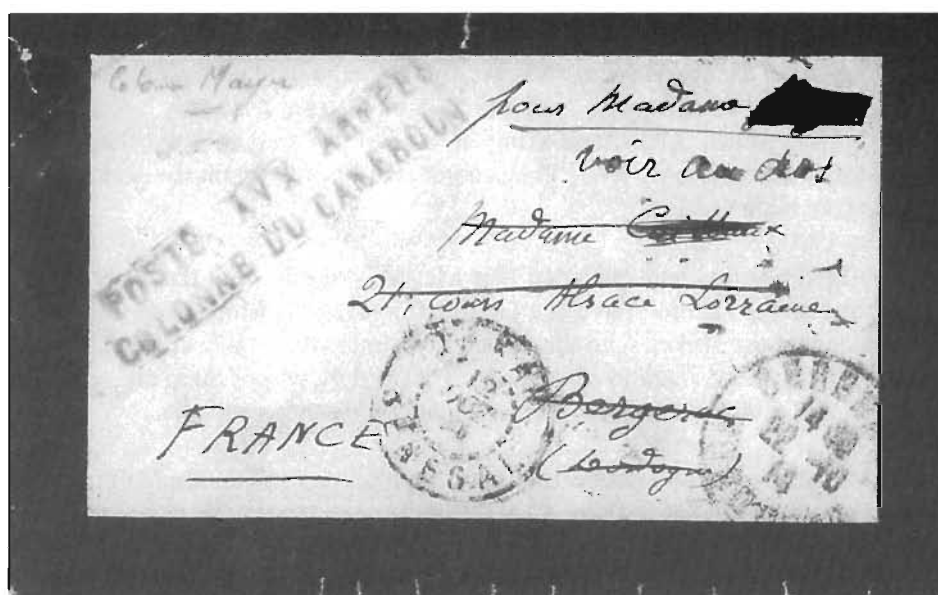 Colonne Mayer
POSTE AUX ARMÉES
COLONNE DU CAMEROUN
pour Madame
voir au dos
Madame
21, cours Alsace Lorraine
Bergerac
(Dordogne)
FRANCE
SENEGAL
14